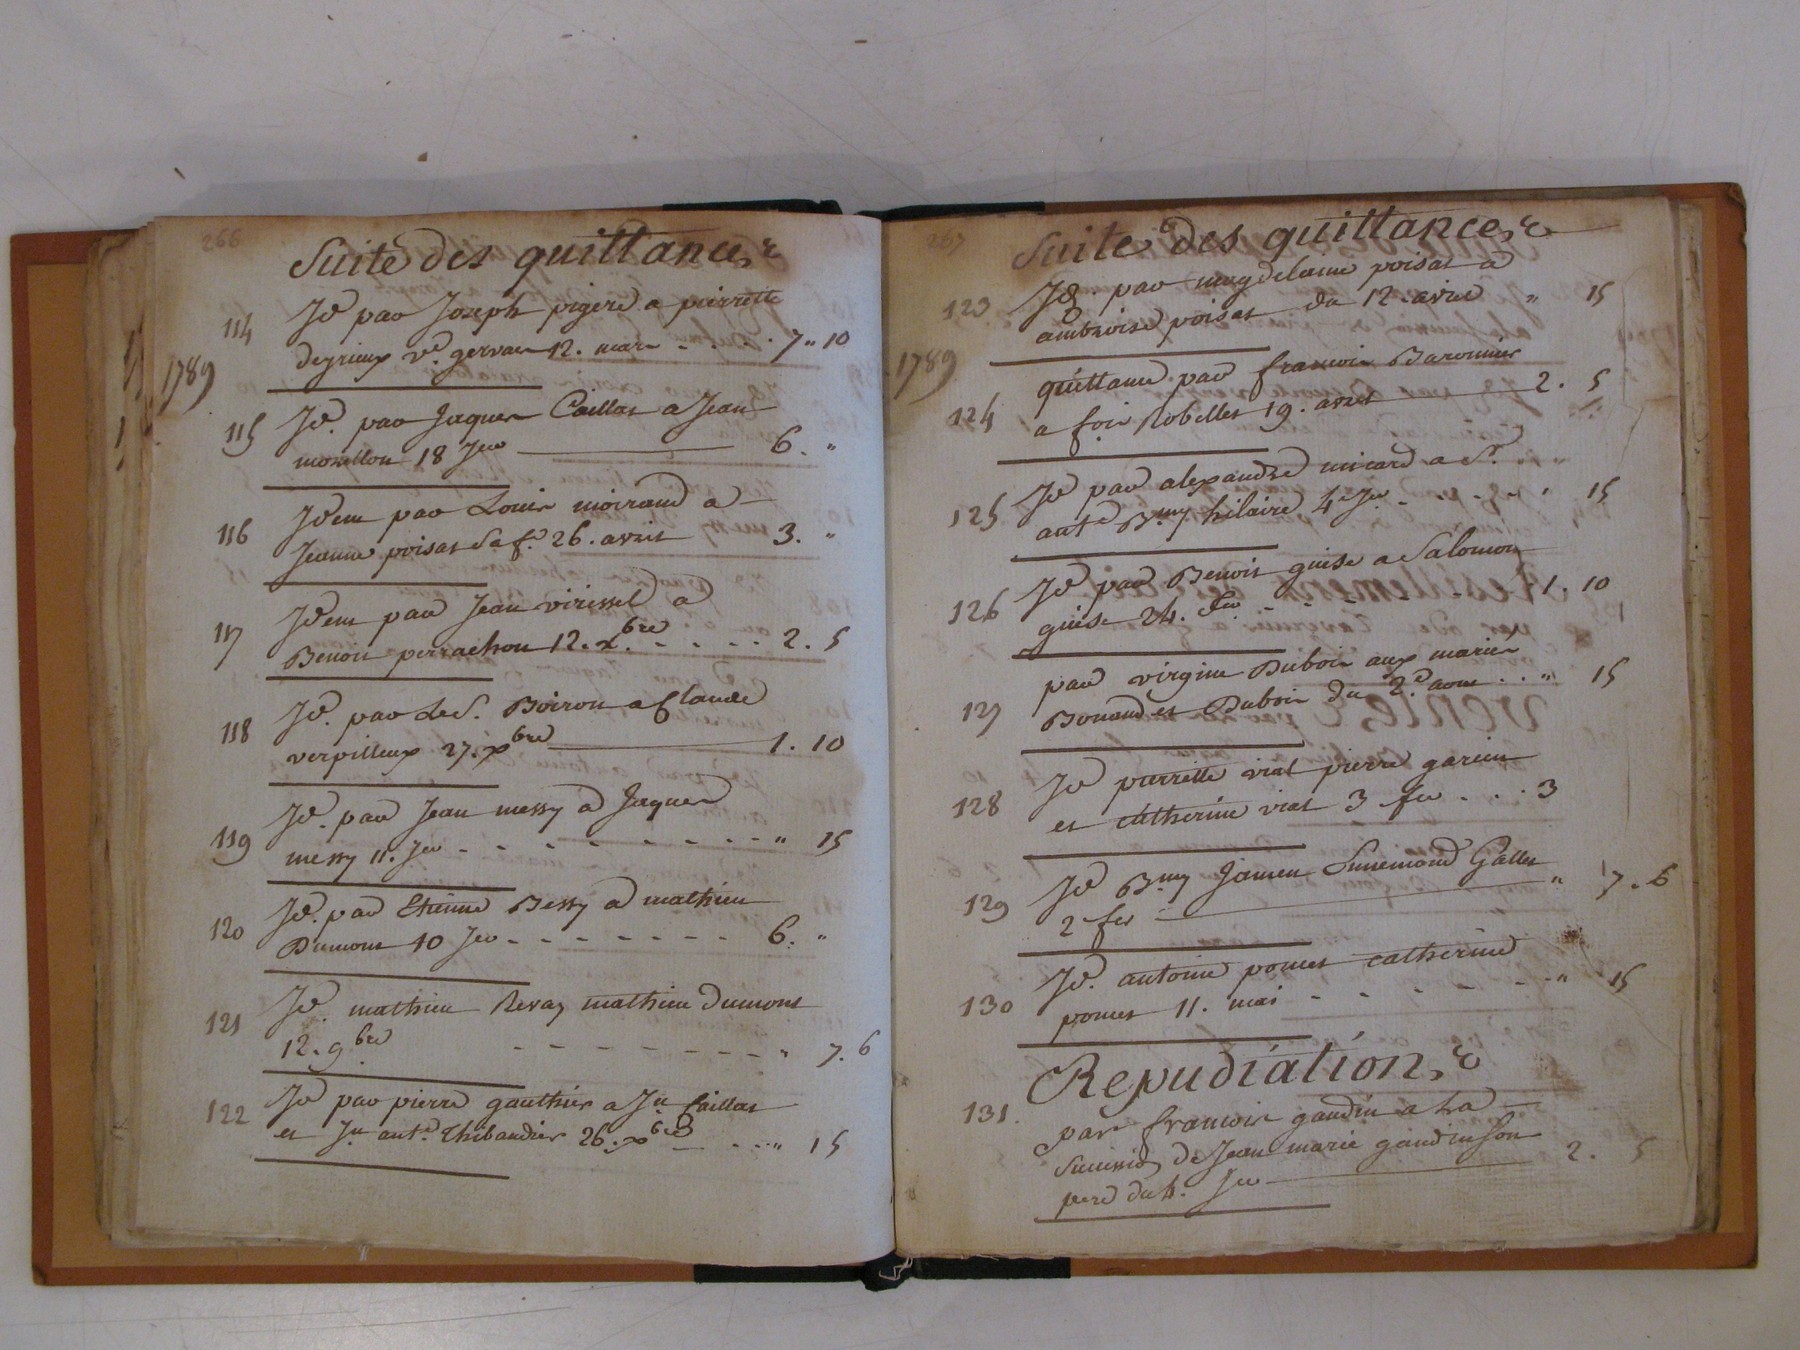 266
Suite des quittances
114 Jd par Joseph pigere a pierrette
deyrieux ve. gervais 12. mars - . . . 7 " 10
1789
115 Jd. par Jaques Caillat a Jean
morillon 18 Jer 6. "
116 Jdem par Louis moirand a
Jeanne poisat Sa f. 26. avril 3. "
117 Jdem par Jean virissel a
Benoit perrachon 12. x.bre - - - - - 2. 5
118 Jd. par Le S. Boiron a Claude
verpilleux 27. xbre 1. 10
119 Jd. par Jean messy a Jaques
messy 11. Jer - - - - - - - - " 15
120 Jd. par Etienne Bessy a mathieu
Dumont 10 Jer - - - - - - - 6. "
121 Jd. mathieu Revay mathieu dumont
12. 9.bre - - - - - - - " 7. 6
122 Jd par pierre gauthier a Jn Caillat
et Jn ante. thibaudier 26. xbre - . . . " 15
267
Suite des quittances
123 Jd. par magdelaine poisat a
ambroise poisat du 12. avril " 15
1789
124 quittance par francois Baronnier
a foi Robellet 19. avril 2. 5
125 Jd par alexandre micard a Sr.
ante Bmy hilaire 4e Jer - . - . - . 15
126 Jd par Benoit guise a Salomon
guise 24. fer. - - - - - - 1. 10
127 par virginie Duboin aux mariés
Bonand et Duboin du 2.d aout . . " 15
128 Jd pierrette viat pierre garein
et catherine viat 3 fer . . . 3
129 Jd Bmy Jamen Gallet
2 fer " 7. 6
130 Jd. antoine ponset catherine
ponset 11. mai - - - - - - . " 15
Repudiation
131. par francois gaudin a La
Succession de Jean marie gaudin son
pere du 4. Jer 2. 5